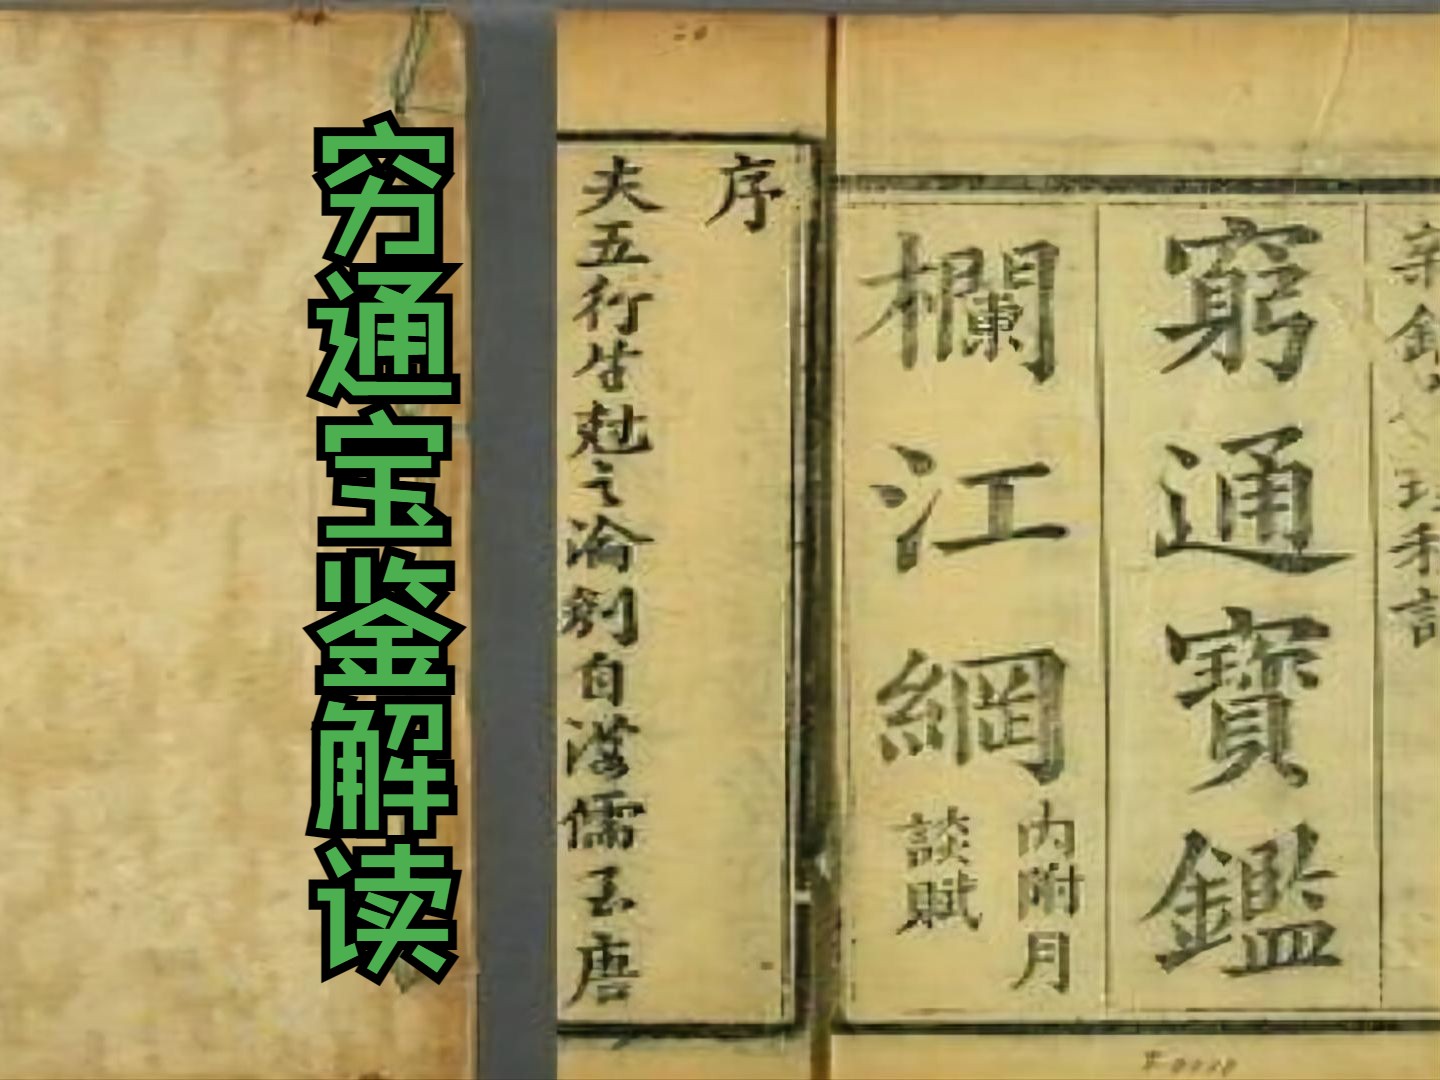 穷通宝鉴解读
窮通寶鑑
欄江網
內附月
談賦
序
夫五行生尅之
自漢儒至唐